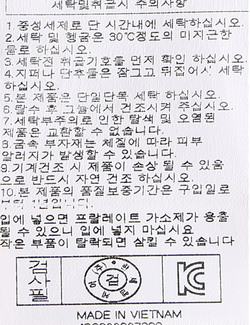 세탁및취급시 주의사항
1.중성세제로 단 시간내에 세탁하십시오.
2.세탁 및 헹굼은 30℃정도의 미지근한
물로 하십시오.
3.세탁전 취급기호를 먼저 확인 하십시오.
4.지퍼나 단추물은 잠그고 뒤집어서 세탁
하십시오.
5.본 제품은 단일단독 세탁 하십시오.
6.탈수 후 그늘에서 건조시켜 주십시오.
7.세탁부주의로 인한 탈색 및 오염된
제품은 교환할 수 없습니다.
8.금속 부자재는 체질에 따라 피부
알러지가 발생할 수 있습니다.
9.기계건조 시 제품이 손상 될 수 있음
으로 반드시 자연 건조 하십시오.
10.본 제품의 품질보증기간은 구입일로
1년입니다.
입에 넣으면 프탈레이트 가소제가 용출
될 수 있으니 입에 넣지 마십시요
작은 부품이 탈락되면 삼킬 수 있습니다
검사필
검
KC
MADE IN VIETNAM